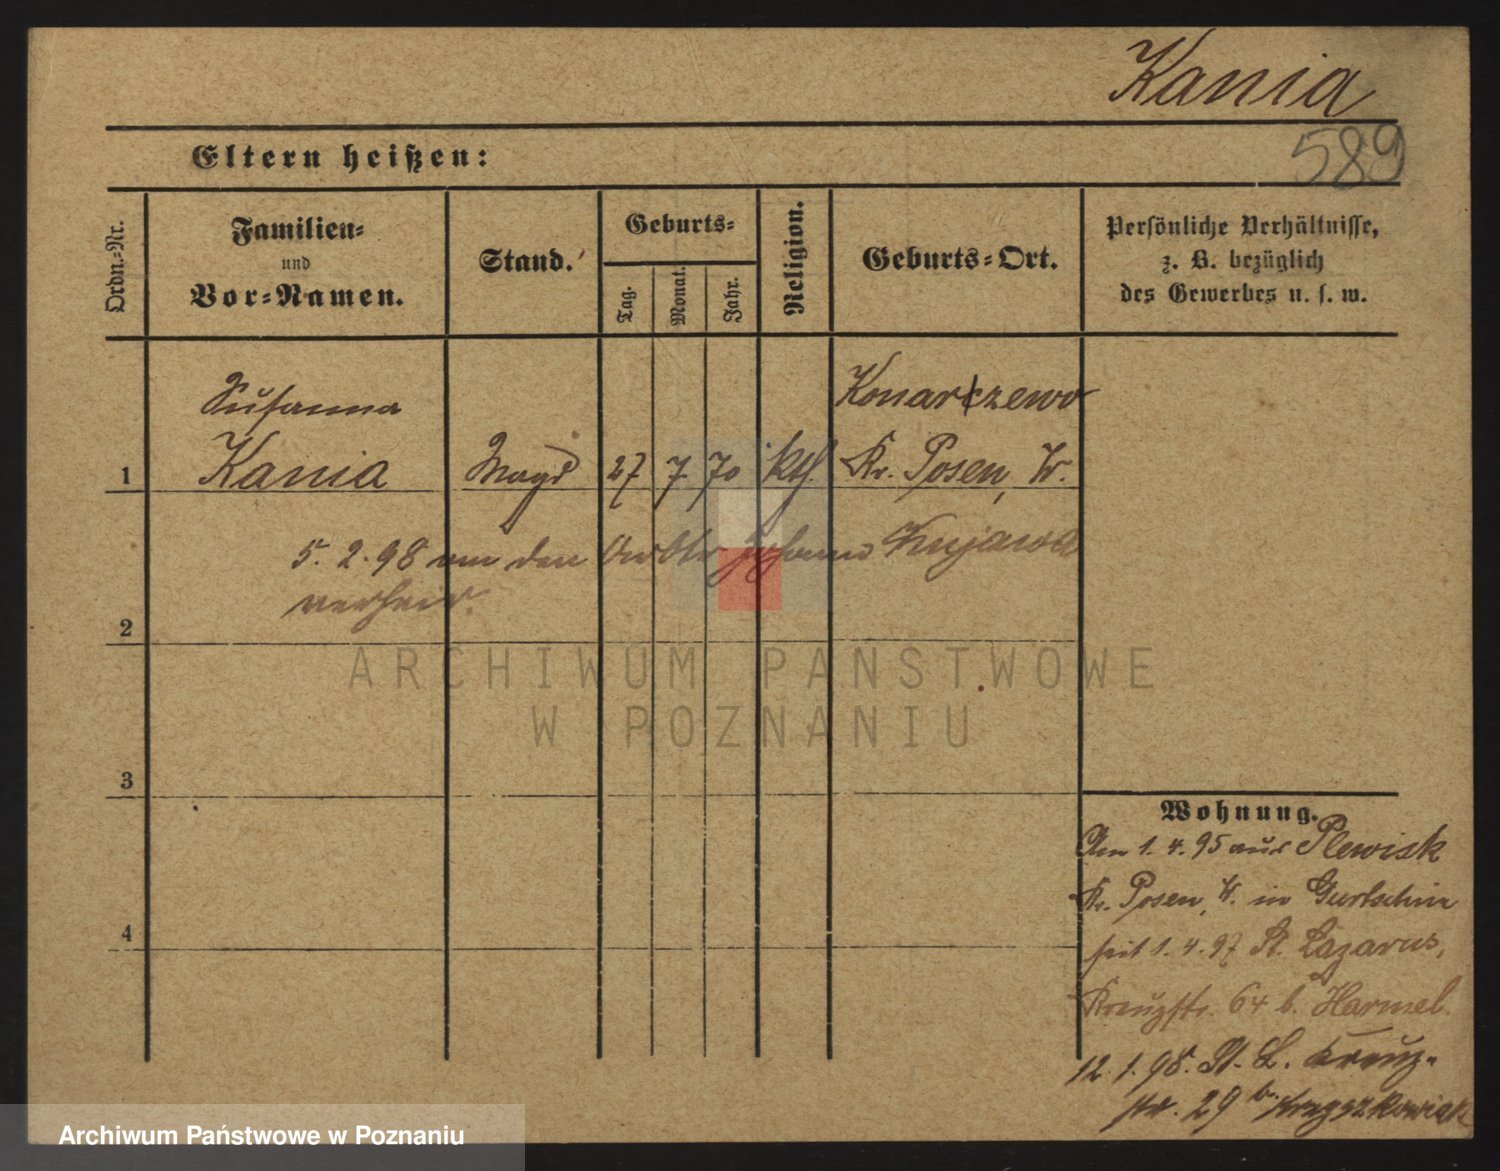 Kania
589
Eltern heißen:
Ordn.-Nr.
Familien-
und
Vor-Namen.
Stand.
Geburts-
Tag.
Monat.
Jahr.
Religion.
Geburts-Ort.
Persönliche Verhältnisse,
z. B. bezüglich
des Gewerbes u. s. w.
Susanna
Konarczewo
1 Kania Magd 27 7. 70 kth. Kr. Posen, W.
5. 2. 98 an den Arbtr Johann Kujawa
verheir.
2
3
4
ARCHIWUM PAŃSTWOWE
W POZNANIU
Wohnung.
Am 1. 4. 95 aus Plewisk
Kr. Posen, W. in Gurtschin
seit 1. 4. 97 St. Lazarus,
Kreuzstr. 64 b. Harmel.
12. 1. 98. St. L. Kreuz-
str. 29 b.
Archiwum Państwowe w Poznaniu